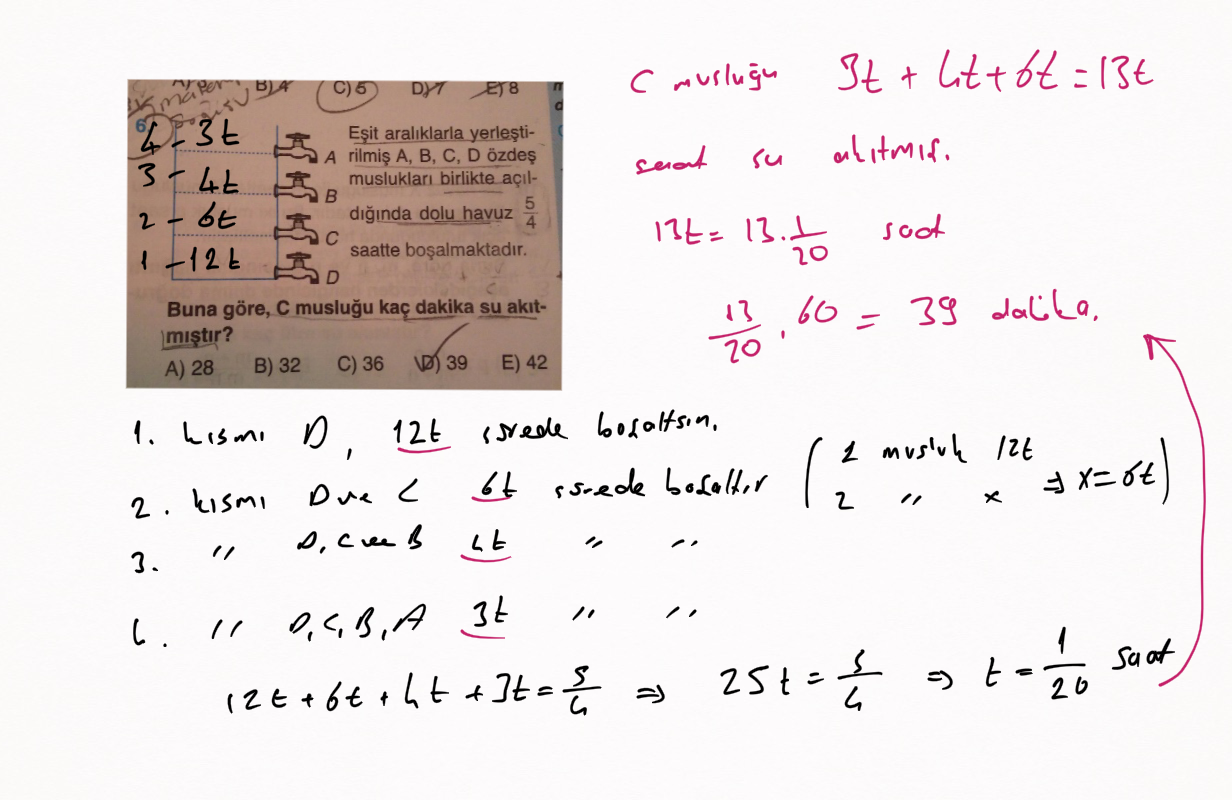 B) 4 C) 5 D) 7 E) 8
6
4 - 3t
3 - 4t
2 - 6t
1 - 12t
A
B
C
D
Eşit aralıklarla yerleşti-
rilmiş A, B, C, D özdeş
muslukları birlikte açıl-
dığında dolu havuz 5/4
saatte boşalmaktadır.
Buna göre, C musluğu kaç dakika su akıt-
mıştır?
A) 28 B) 32 C) 36 D) 39 E) 42
C musluğu 3t + 4t + 6t = 13t
saat su akıtmış.
13t = 13 . 1/20 saat
13/20 . 60 = 39 dakika.
1. kısmı D, 12t sürede boşaltsın.
2. kısmı D ve C 6t sürede boşaltır
( 1 musluk 12t
2 " x ⇒ x = 6t )
3. " D, C ve B 4t " "
4. " D, C, B, A 3t " "
12t + 6t + 4t + 3t = 5/4 ⇒ 25t = 5/4 ⇒ t = 1/20 saat